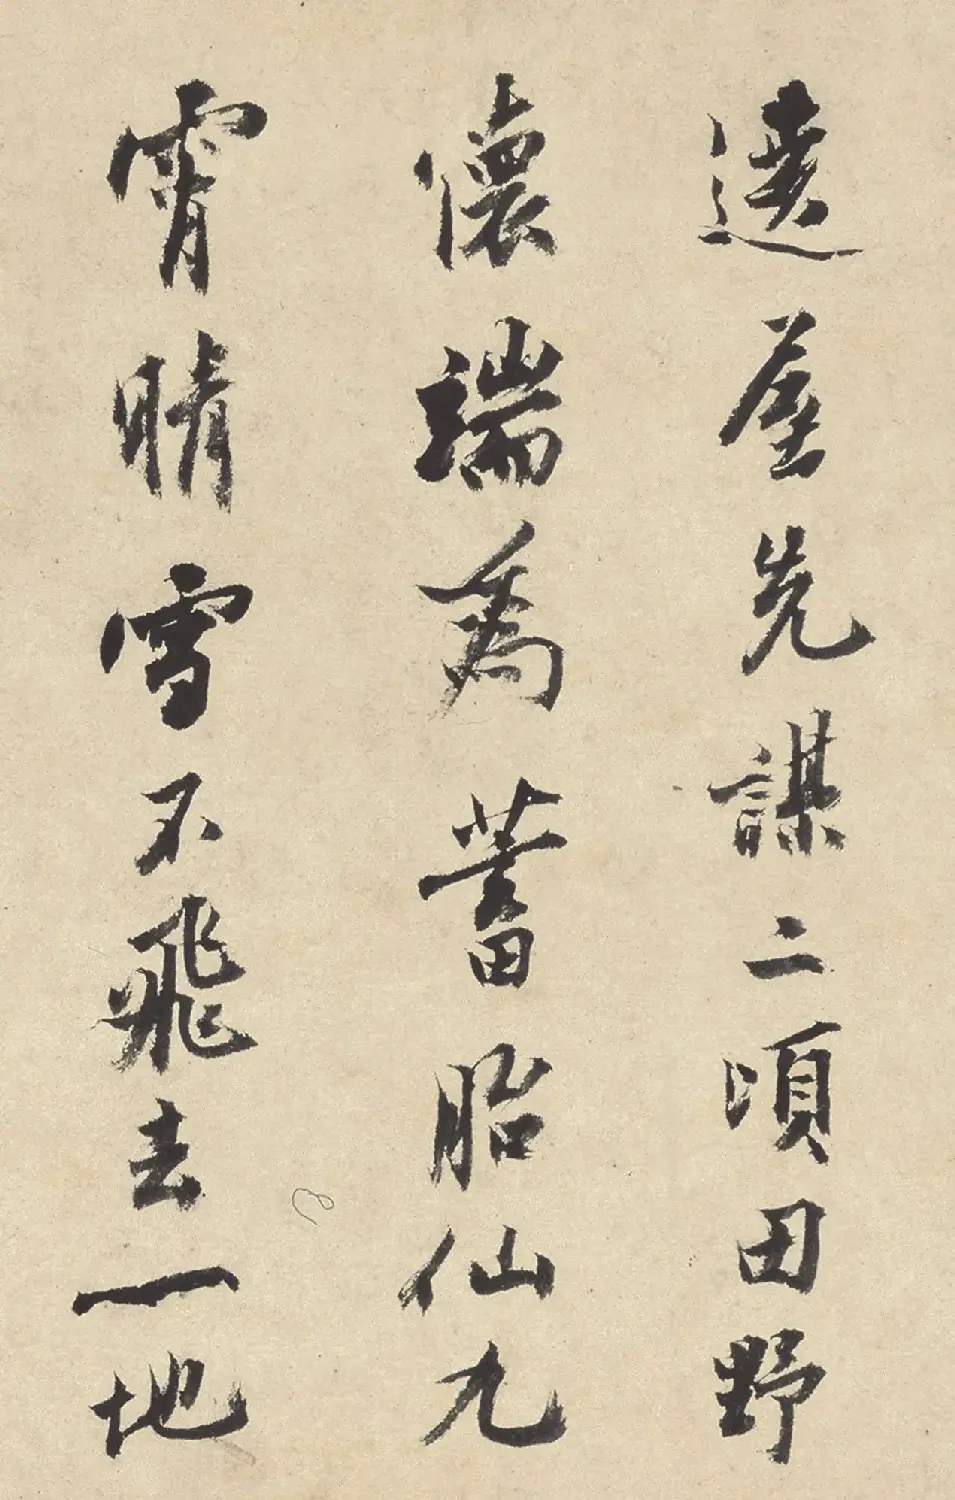 遶屋先謀二頃田野
懷端為蓄胎仙九
霄晴雪不飛去一地